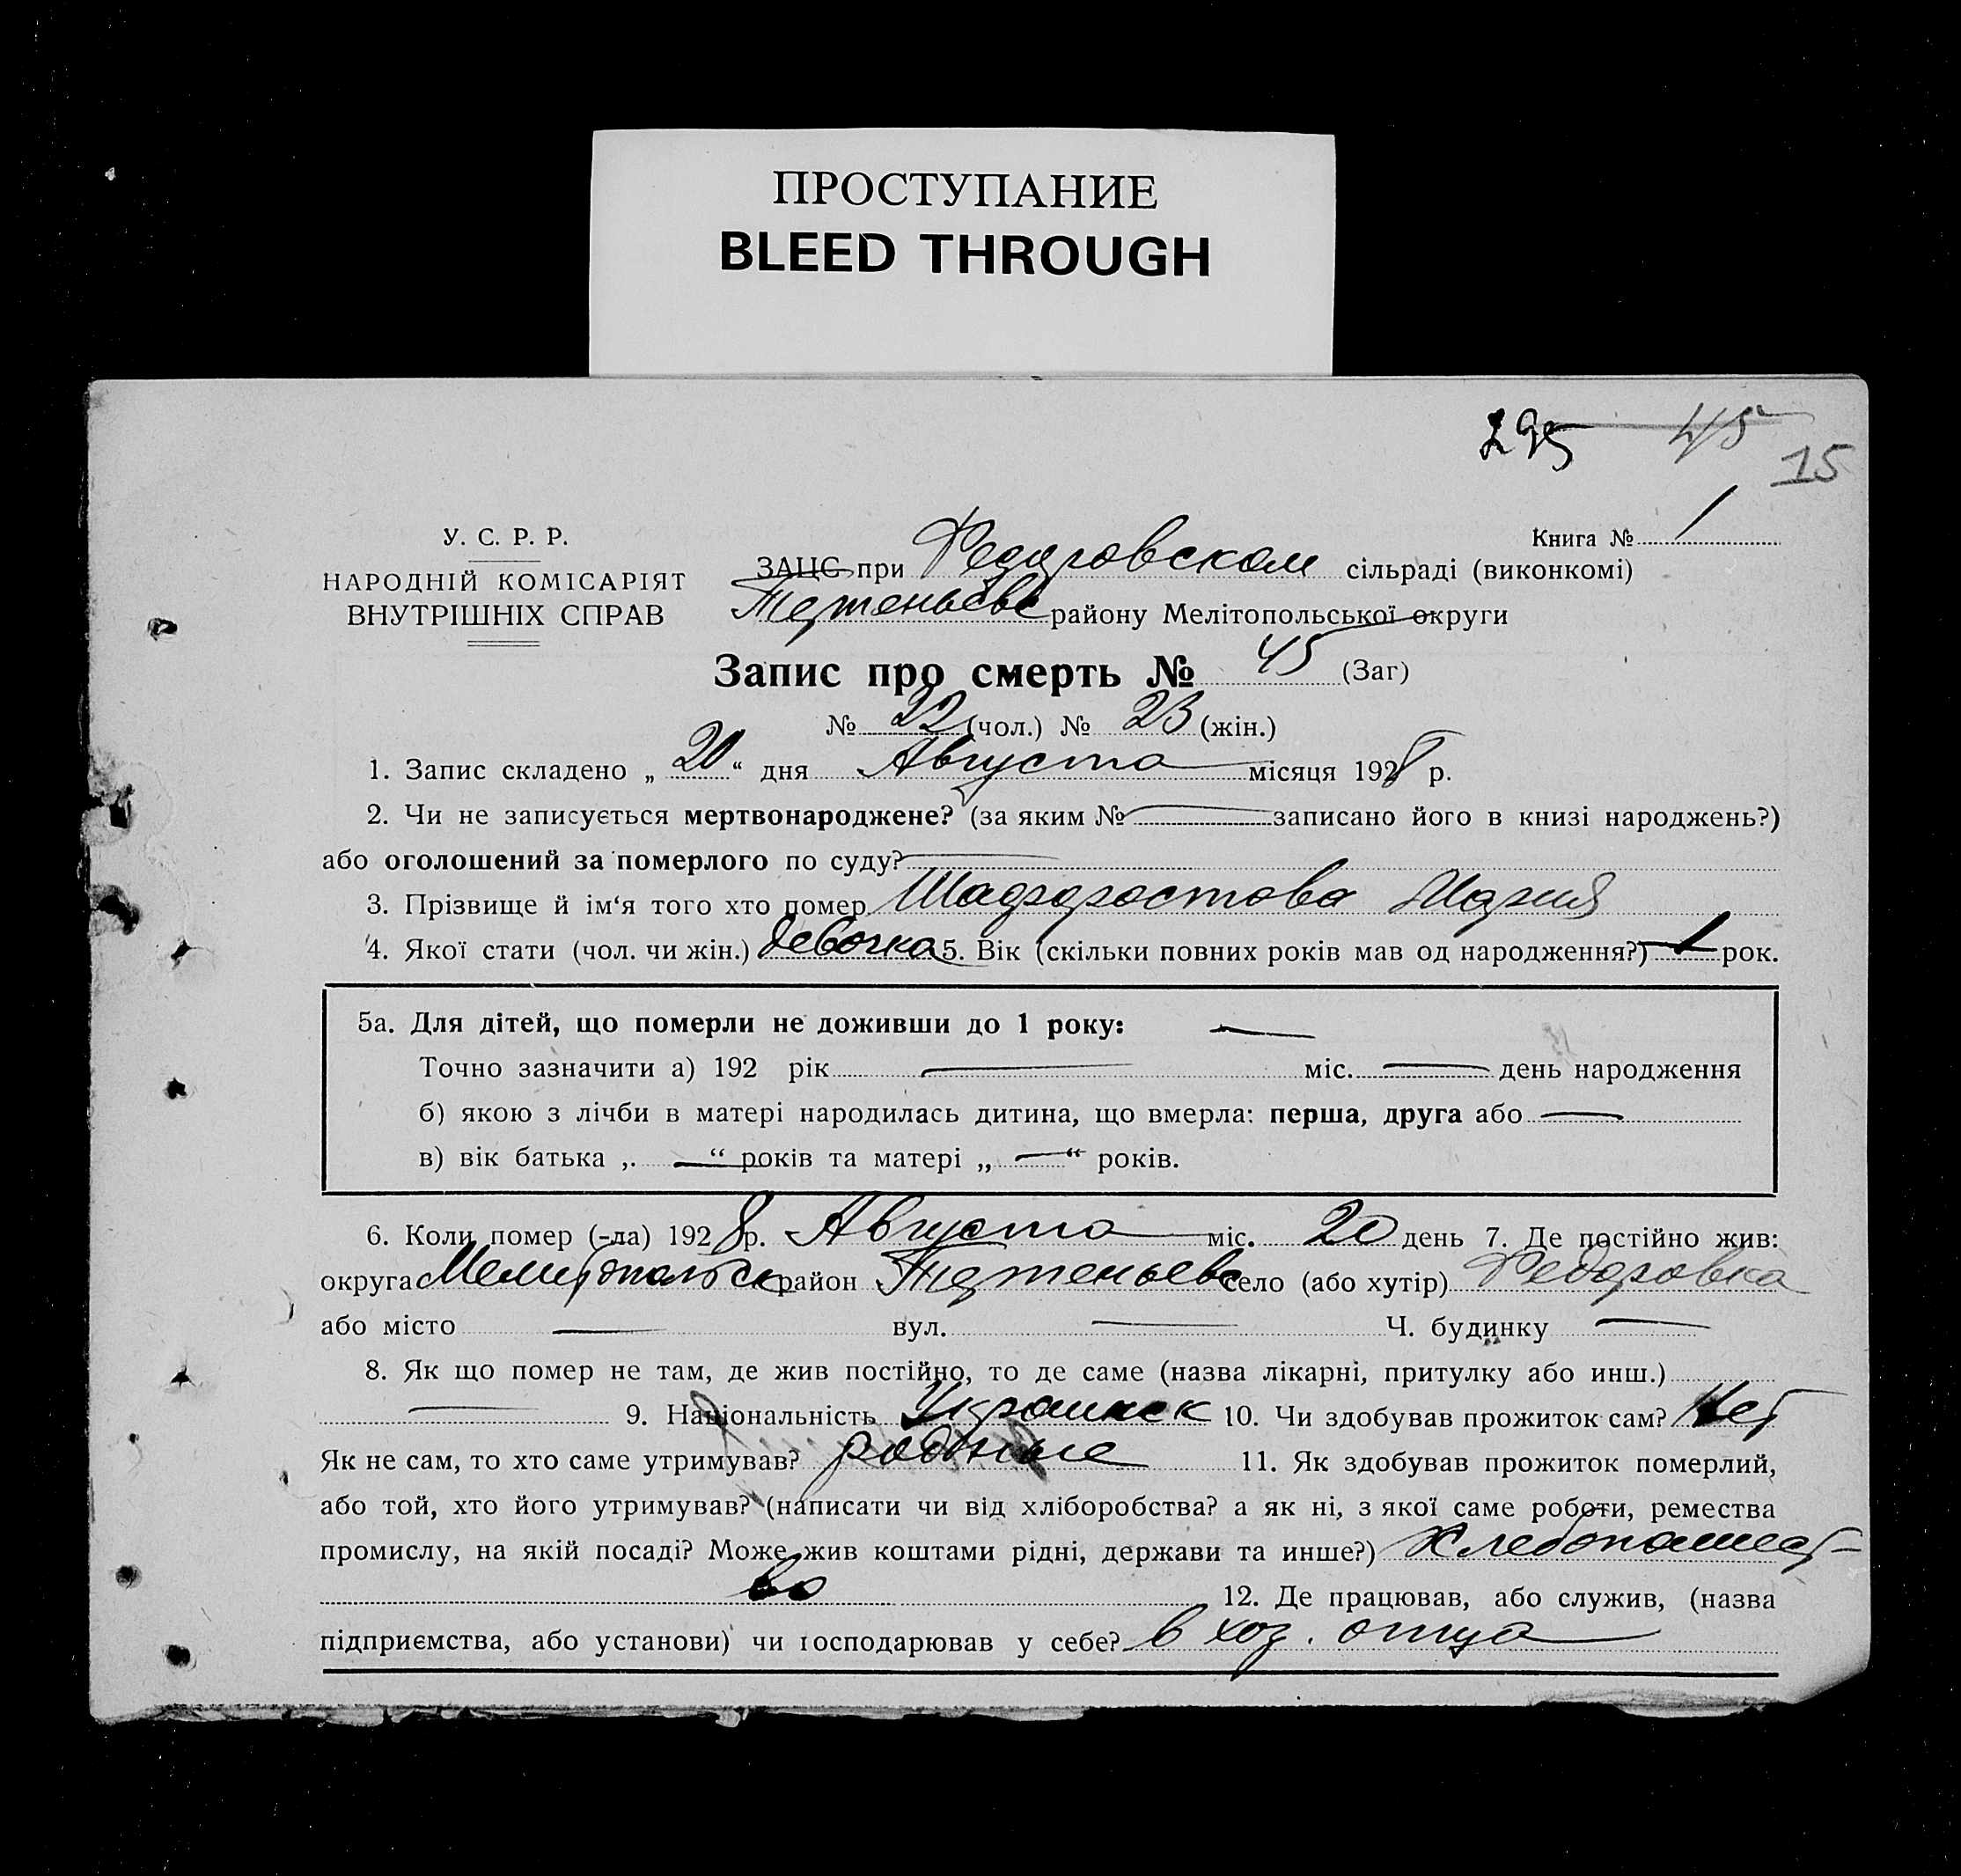 ПРОСТУПАНИЕ
BLEED THROUGH
295 45
15
У. С. Р. Р.
НАРОДНІЙ КОМІСАРІЯТ
ВНУТРІШНІХ СПРАВ
Книга № 1
ЗАЦС при Федоровском сільраді (виконкомі)
району Мелітопольської округи
Запис про смерть № 45 (Заг)
№ 22 (чол.) № 23 (жін.)
1. Запис складено „ 20 “ дня Августа місяця 1928 р.
2. Чи не записується мертвонароджене? (за яким № записано його в книзі народжень?)
або оголошений за померлого по суду?
3. Прізвище й ім‘я того хто помер Мария
4. Якої стати (чол. чи жін.) девочка 5. Вік (скільки повних років мав од народження?) 1 рок.
5а. Для дітей, що померли не доживши до 1 року: —
Точно зазначити а) 192 рік — міс. — день народження
б) якою з лічби в матері народилась дитина, що вмерла: перша, друга або —
в) вік батька „ — “ років та матері „ — “ років.
6. Коли помер (-ла) 1928 р. Августа міс. 20 день 7. Де постійно жив:
округа Мелитопольск район село (або хутір) Федоровка
або місто — вул. — Ч. будинку —
8. Як що помер не там, де жив постійно, то де саме (назва лікарні, притулку або инш.)
— 9. Національність Украинск 10. Чи здобував прожиток сам? Нет
Як не сам, то хто саме утримував? родные 11. Як здобував прожиток померлий,
або той, хто його утримував? (написати чи від хліборобства? а як ні, з якої саме роботи, ремества
промислу, на якій посаді? Може жив коштами рідні, держави та инше?) Хлебопашест-
во 12. Де працював, або служив, (назва
підприємства, або установи) чи господарював у себе? в хоз. отца